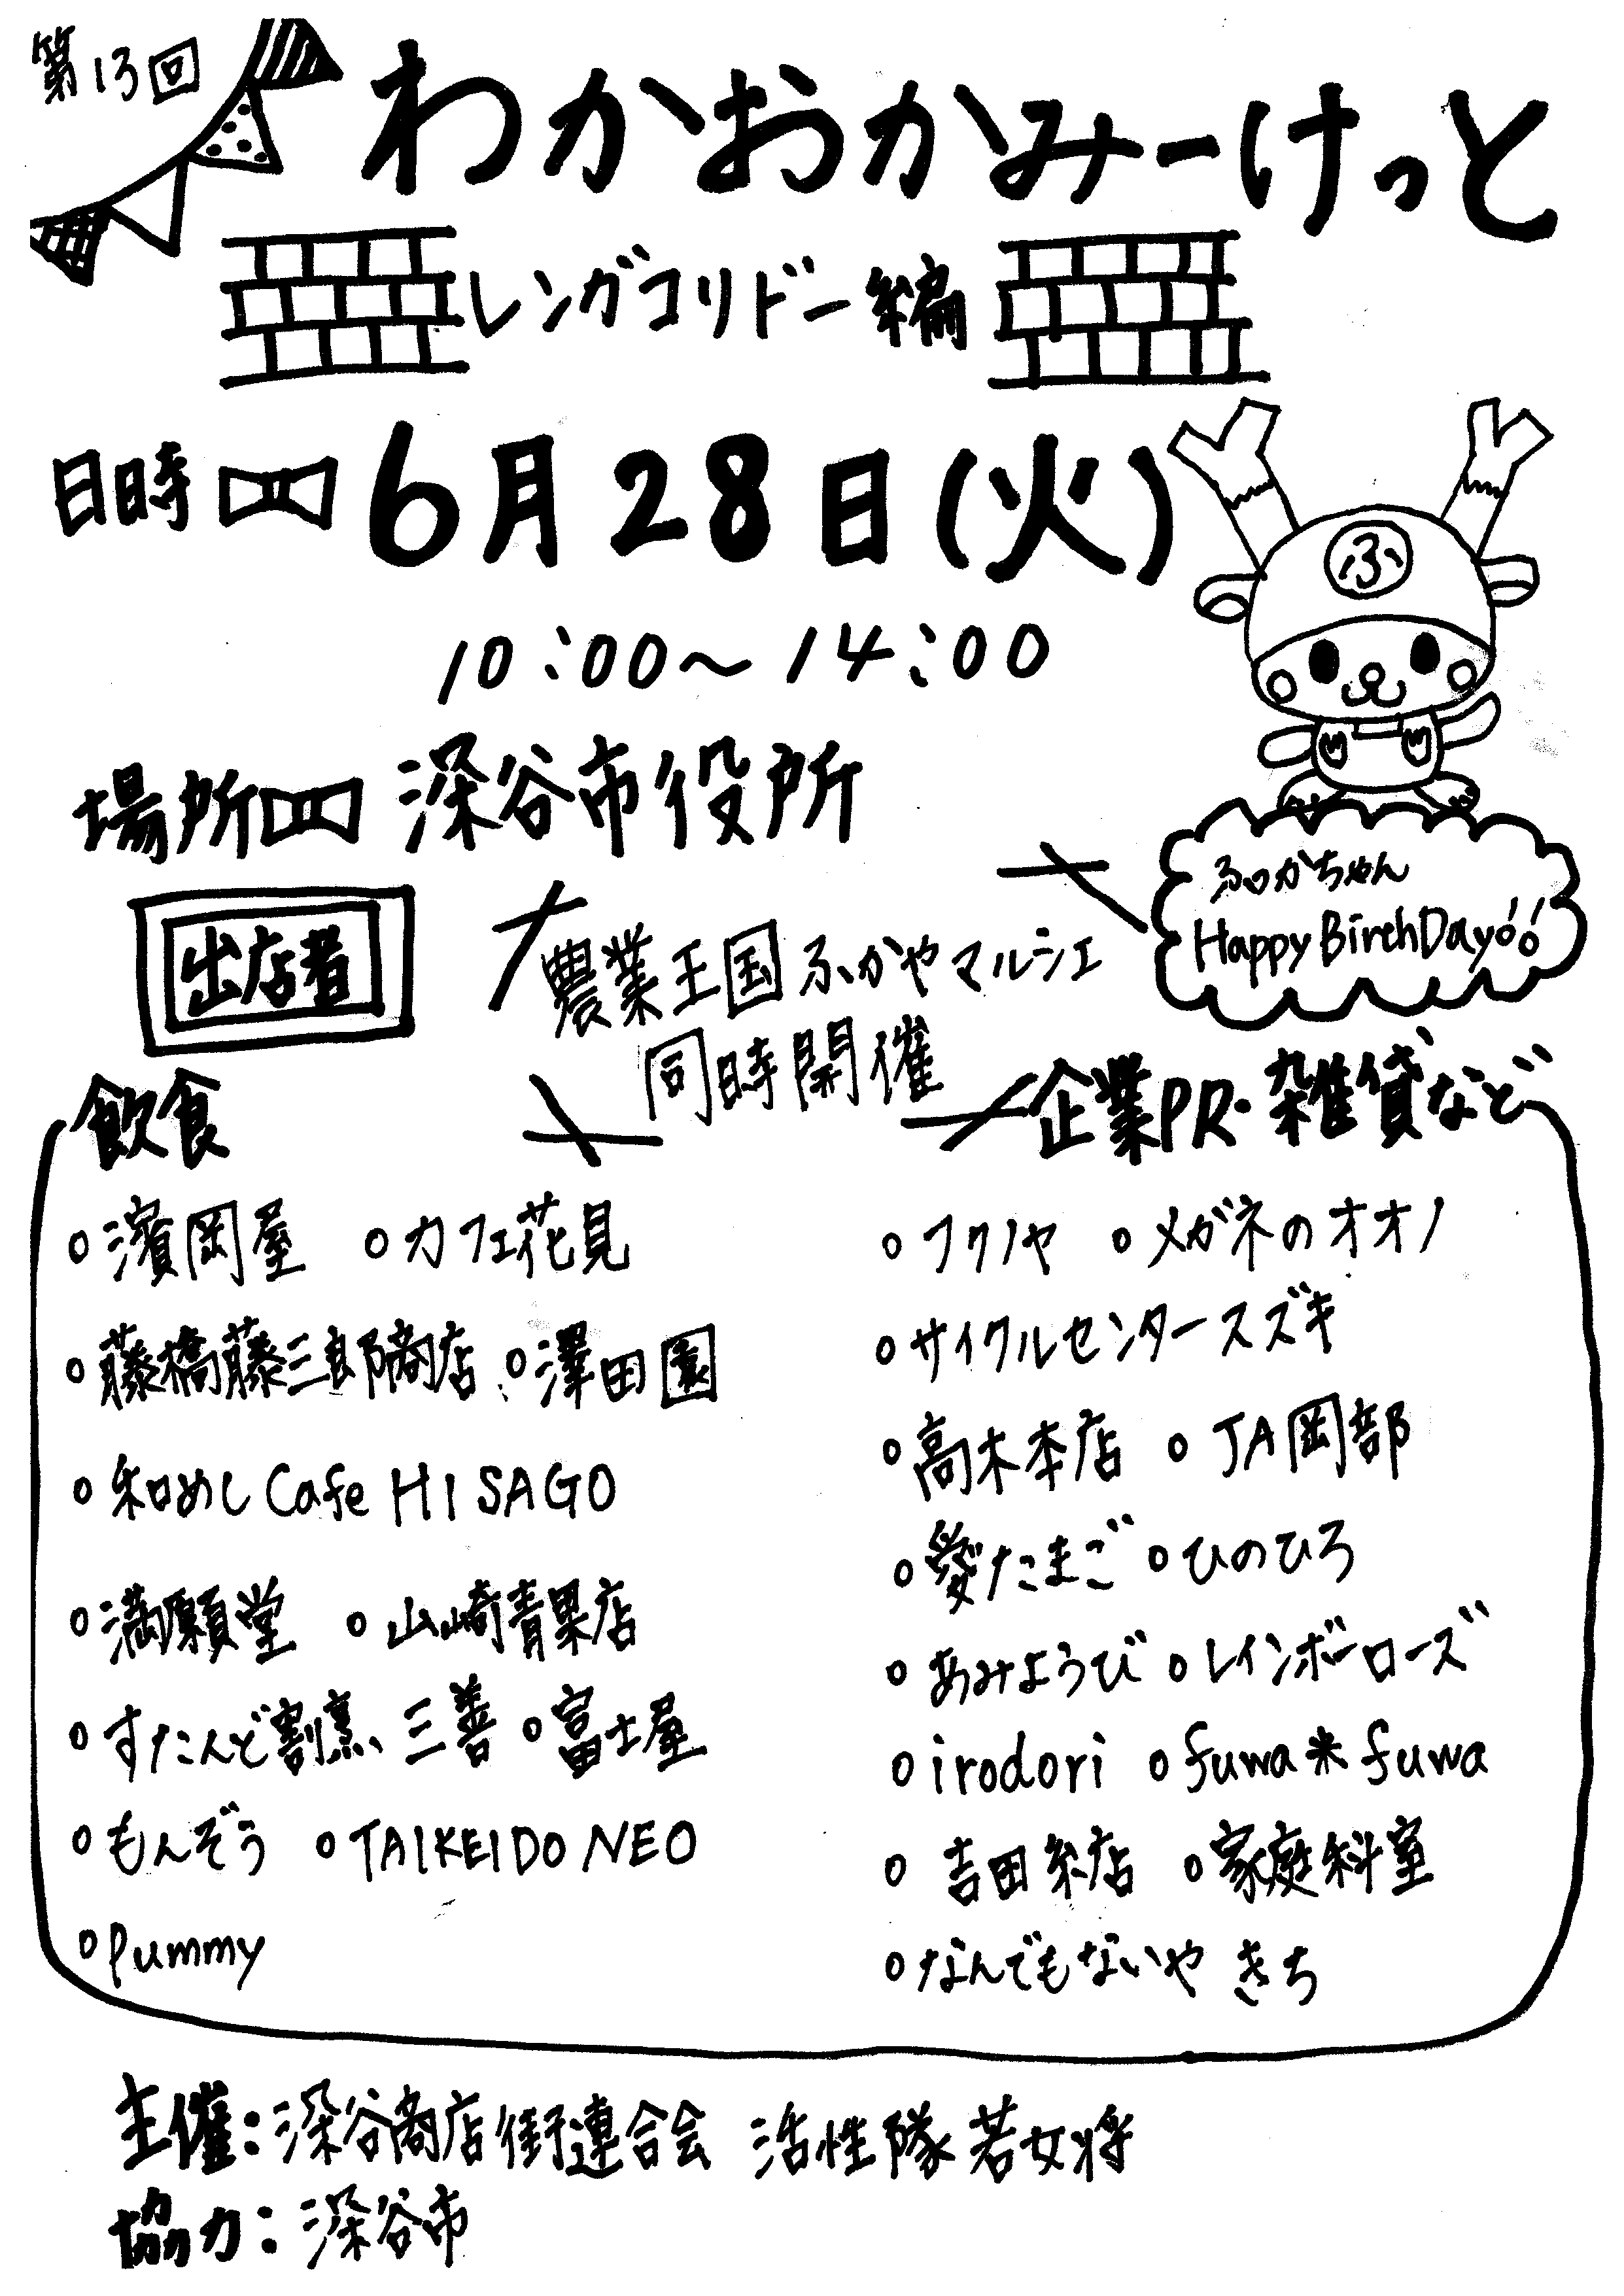 第13回
わかおかみーけっと
レンガコリドー編
日時 6月28日(火)
10:00～14:00
ふ
場所 深谷市役所
ふっかちゃん
Happy BirthDay!!
出店者
農業王国ふかやマルシェ
同時開催
飲食
○濱岡屋 ○カフェ花見
○藤橋藤三郎商店 ○澤田園
○和めし Cafe HISAGO
○満願堂 ○山崎青果店
○すたんど割烹、三善 ○富士屋
○もんぞう ○TAIKEIDO NEO
○Pummy
企業PR・雑貨など
○フクノヤ ○メガネのオオノ
○サイクルセンタースズキ
○高木本店 ○JA岡部
○愛たまご ○ひのひろ
○あみようび ○レインボーローズ
○irodori ○fuwa＊fuwa
○吉田糸店 ○家庭科室
○なんでもないや きち
主催:深谷商店街連合会 活性隊 若女将
協力:深谷市